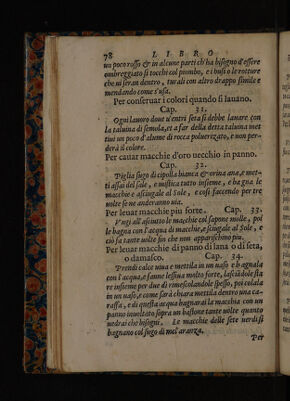 78 LIBRO
un poco rosso & in alcune parti ch'ha bisogno d'essere
ombreggiato si tocchi col piombo, e i busi o le rotture
che vi seran dentro, turali con altro drappo simile e
mendando come s'usa.
Per conseruar i colori quando si lauano.
Cap. 31.
Ogni lauoro doue v'entri seta si debbe lauare con
la taluina di semola, et a far della detta taluina met
tiui un poco d'alume di rocca poluerizato, e non per-
derà il colore.
Per cauar macchie d'oro vecchio in panno.
Cap. 32.
Piglia sugo di cipolla bianca & orina ana, e met-
ti assai del sale, e mistica tutto insieme, e bagna le
macchie e asciugale al Sole, e così facendo per tre
volte se ne anderanno uia.
Per leuar macchie più forte. Cap. 33.
Vngi all'asciutto le macchie col sapone molle, poi
le bagna con l'acqua di macchie, e sciugale al Sole, e
ciò fa tante volte fin che non apparischino più.
Per leuar macchie di panno di lana o di seta,
o damasco. Cap. 34.
Prendi calce viua e mettila in un uaso e bagnala
con l'acqua, e fanne lessiua molto forte, lasciādola sta
re insieme per due dì rimescolandole spesso, poi colala
in un uaso, e come sarà chiara mettila dentro una ca-
raffa, e di questa acqua bagnarai la macchia con un
panno inuoltato sopra un bastone tante volte quanto
vedrai che bisogni. Le macchie delle sete uerdi si
bagnano col sugo di mel'aranza.
Per